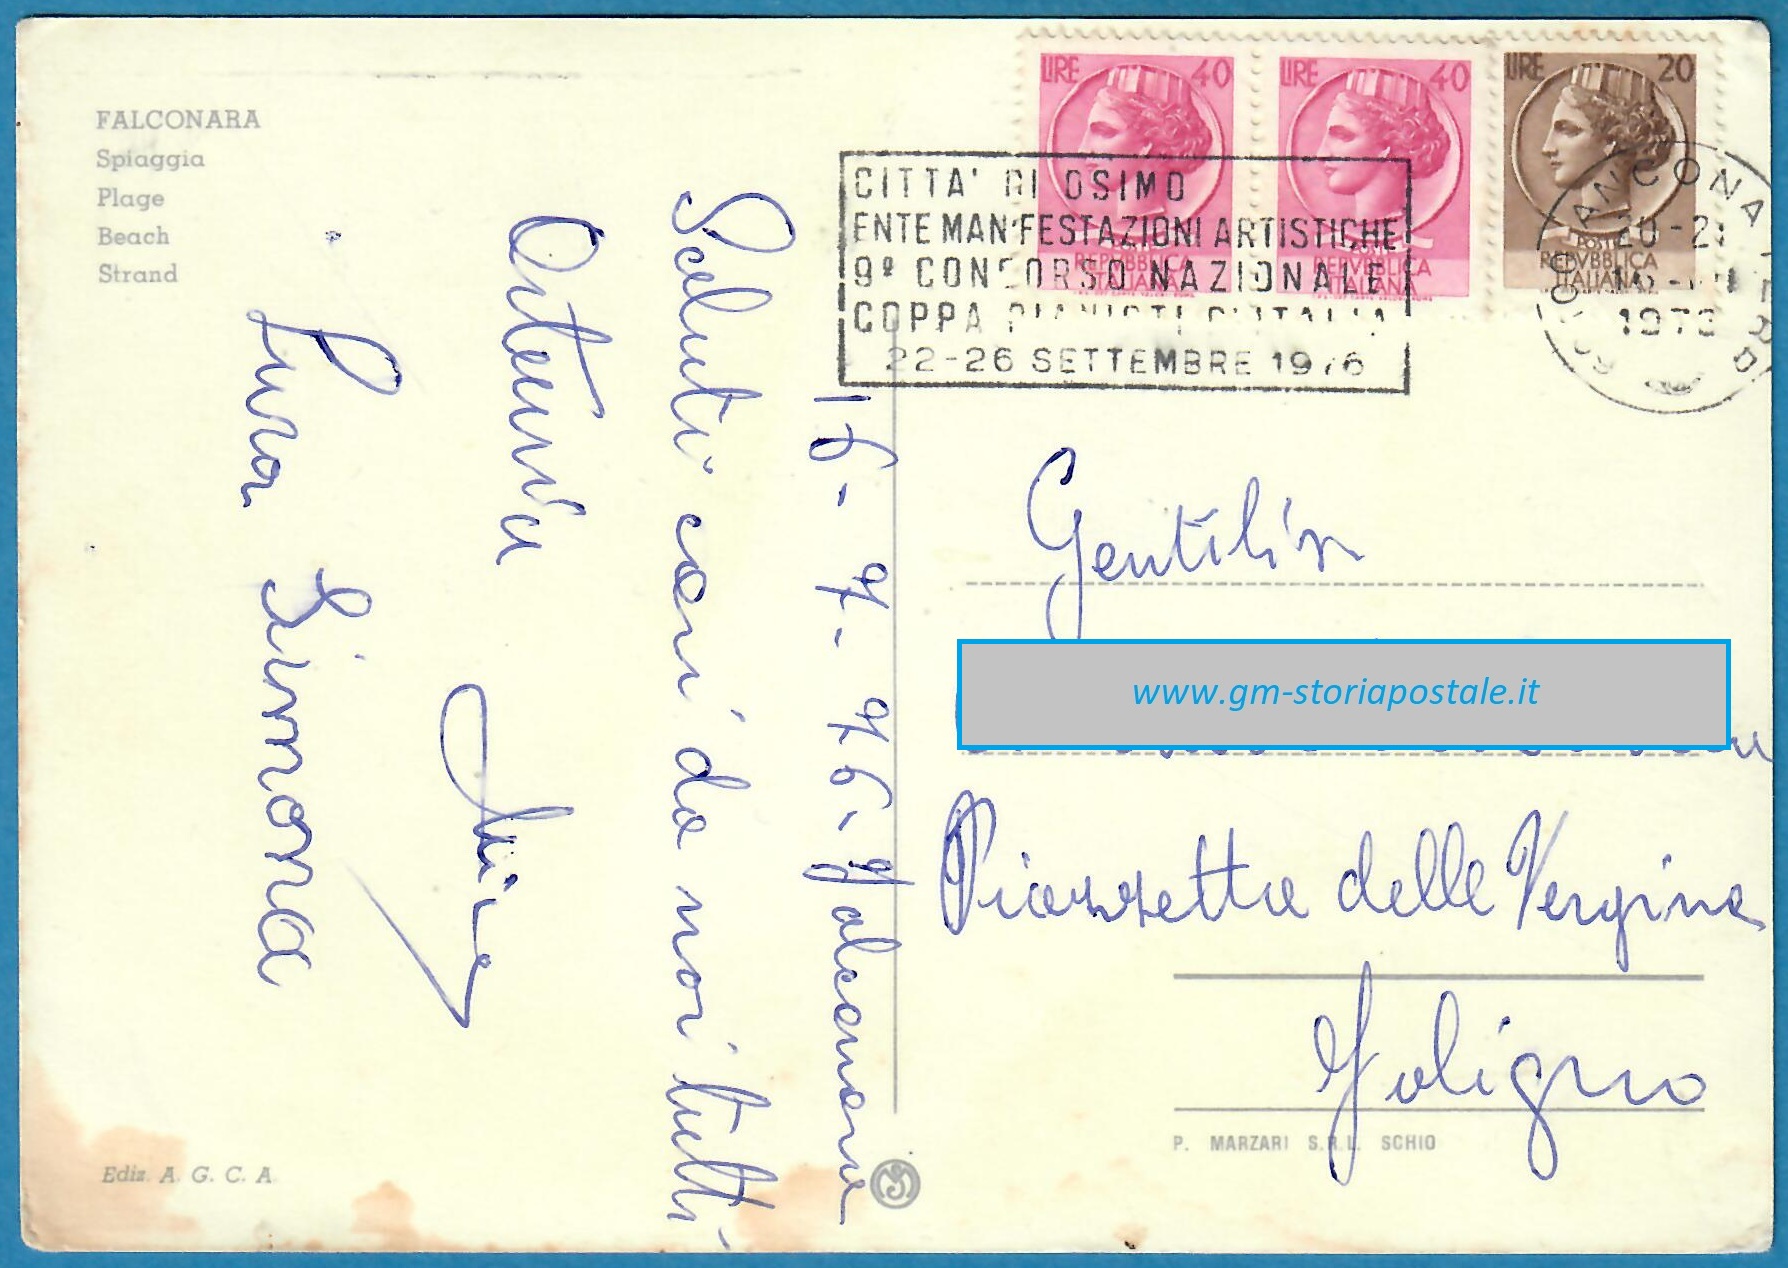 FALCONARA
Spiaggia
Plage
Beach
Strand
LIRE 40
REPVBBLICA
ITALIANA
LIRE 40
REPVBBLICA
ITALIANA
LIRE 20
POSTE
REPVBBLICA
ITALIANA
CITTA' DI OSIMO
ENTE MANIFESTAZIONI ARTISTICHE
9º CONCORSO NAZIONALE
COPPA PIANISTI D'ITALIA
22-26 SETTEMBRE 1976
ANCONA
20-21
197
16-7-76- Falconara
Saluti cari da noi tutti
Ortensia
Luca Simona
Gentili
www.gm-storiapostale.it
Piazzetta delle Vergini
Foligno
P. MARZARI S.R.L. SCHIO
Ediz. A. G. C. A.